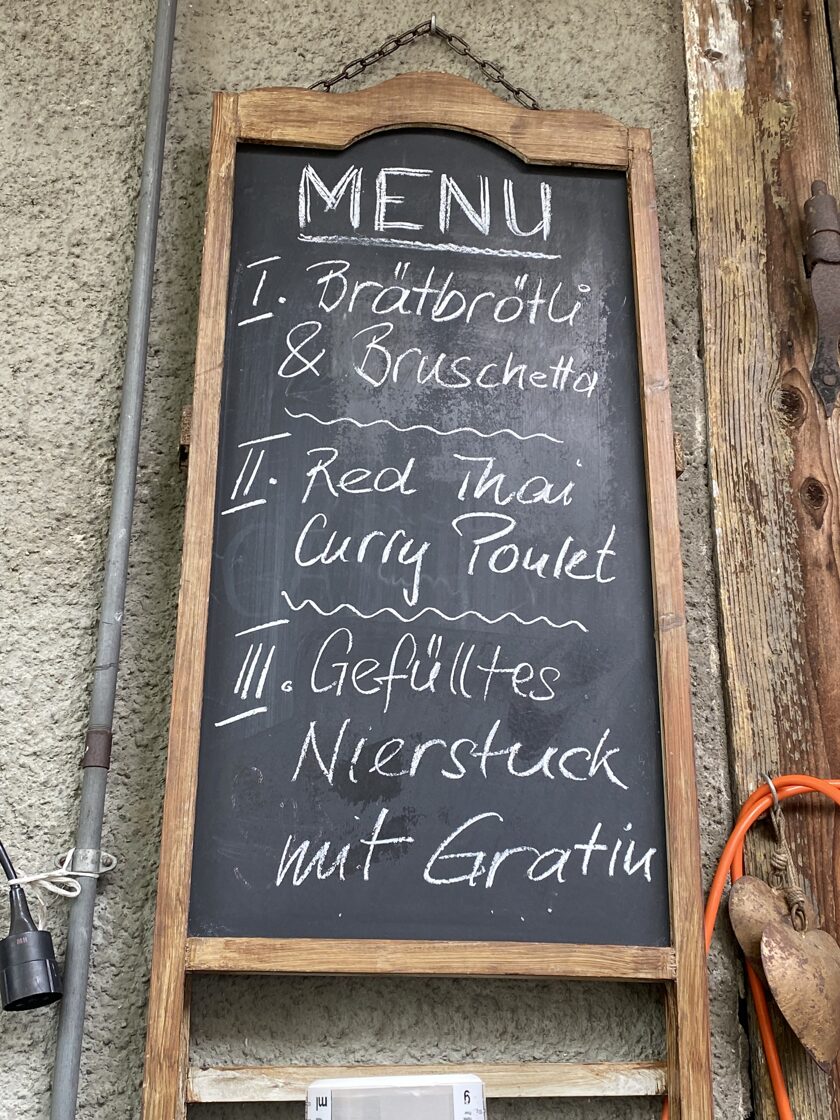 MENU
I. Brätbrötli
& Bruschetta
II. Red Thai
Curry Poulet
III. Gefülltes
Nierstuck
mit Gratin
ml
g